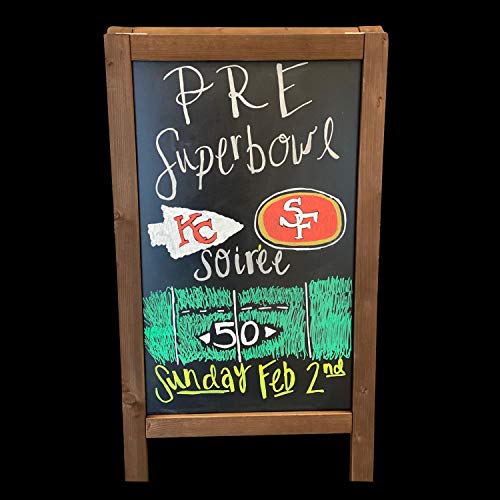 PRE
Superbowl
KC SF
soirée
50
Sunday Feb 2nd